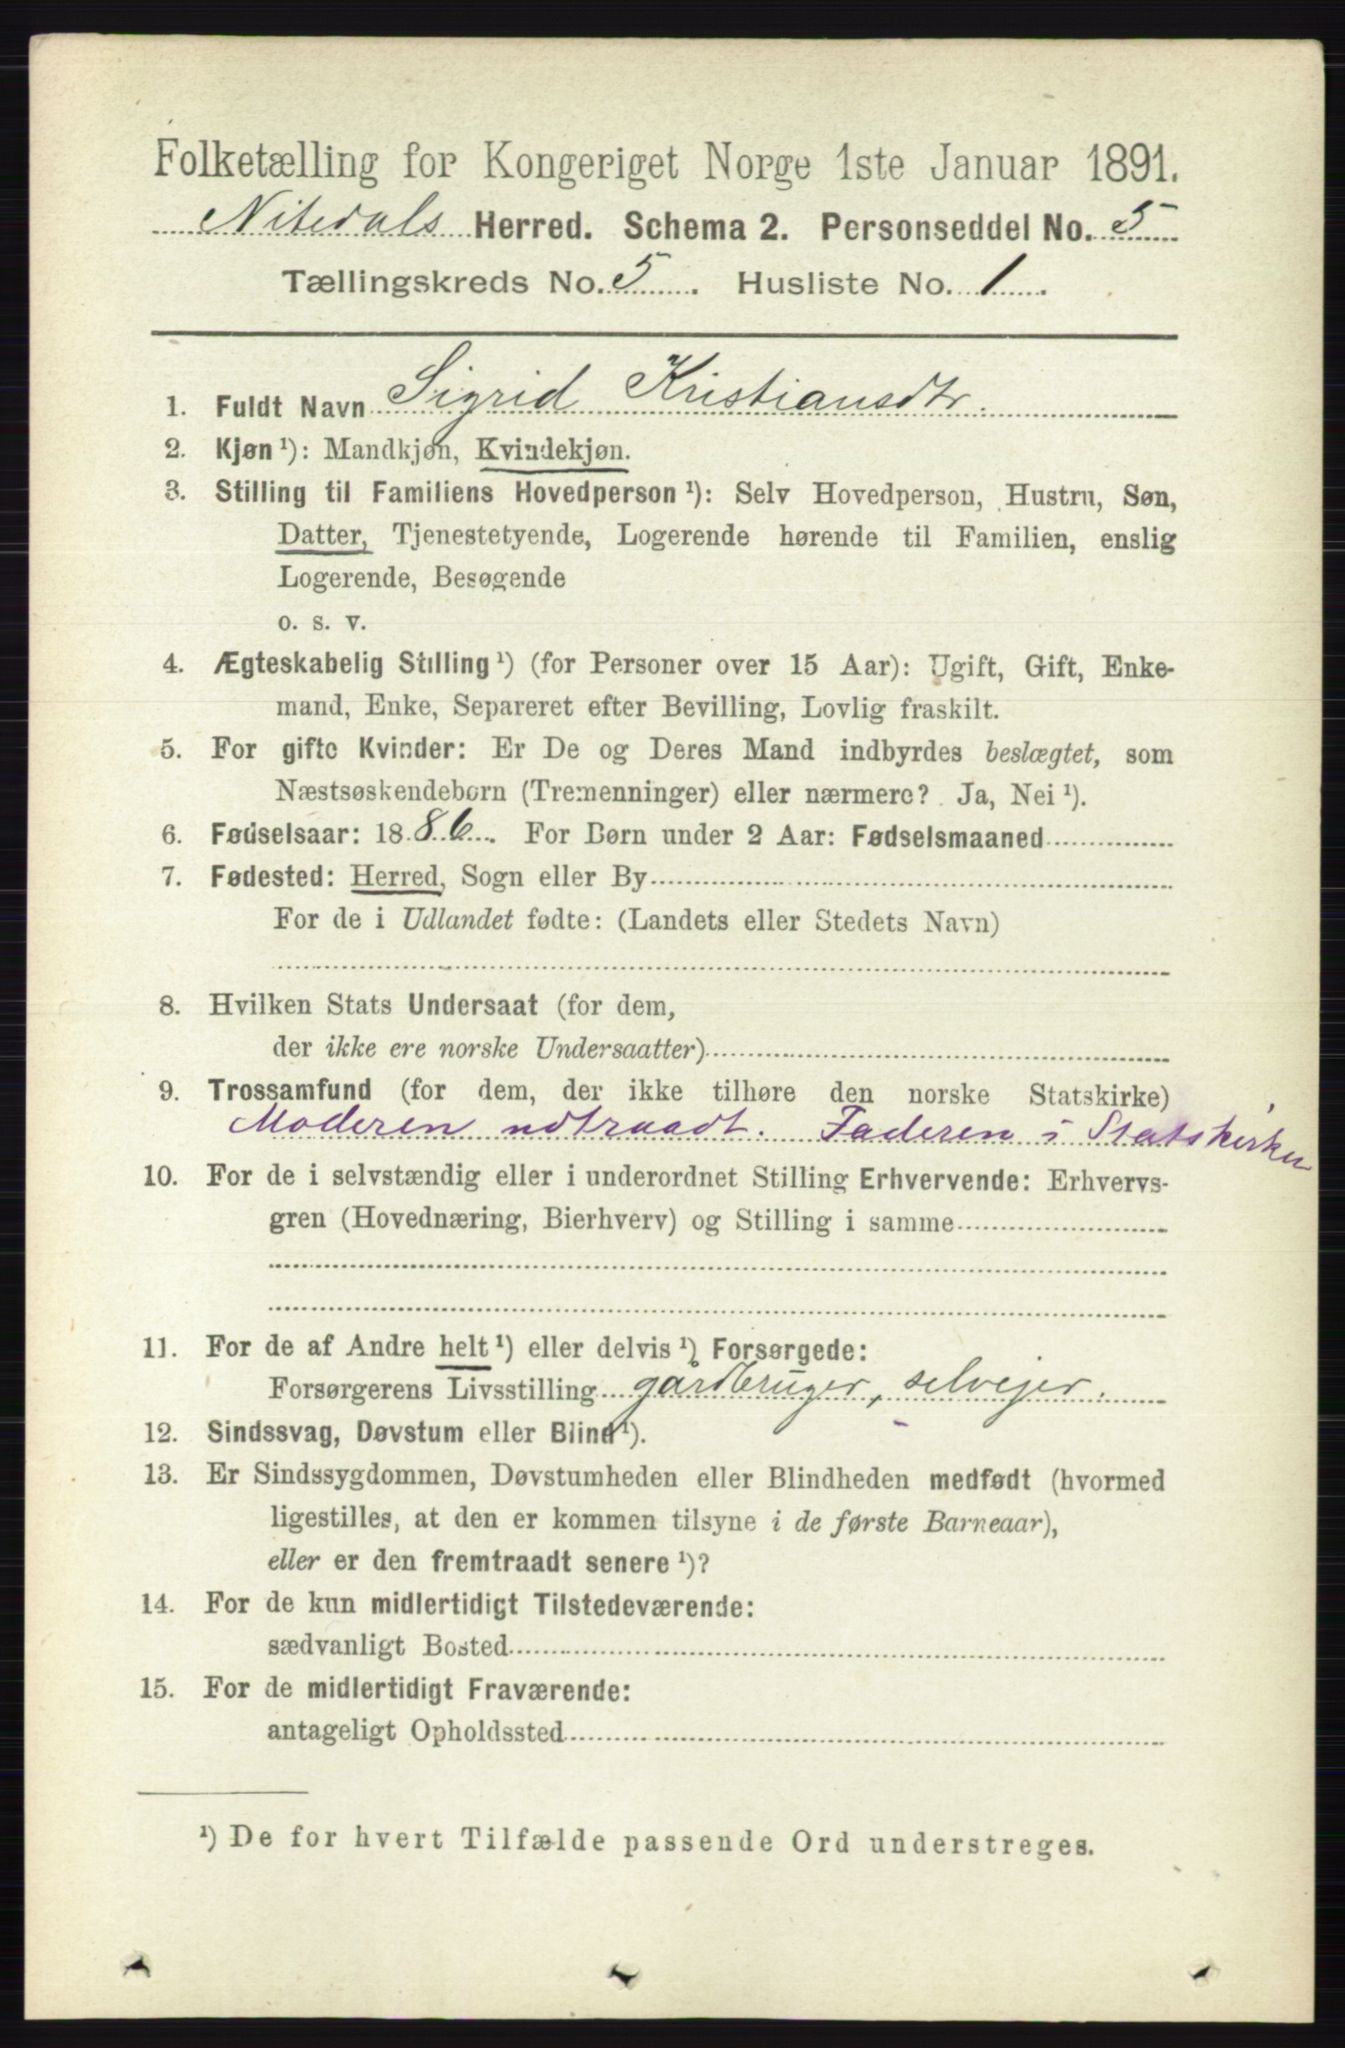 Folketælling for Kongeriget Norge 1ste Januar 1891.
Nitedals Herred. Schema 2. Personseddel No. 5
Tællingskreds No. 5. Husliste No. 1.
1. Fuldt Navn Sigrid Kristiansdtr.
2. Kjøn ¹): Mandkjøn, Kvindekjøn.
3. Stilling til Familiens Hovedperson ¹): Selv Hovedperson, Hustru, Søn,
Datter, Tjenestetyende, Logerende hørende til Familien, enslig
Logerende, Besøgende
o. s. v.
4. Ægteskabelig Stilling ¹) (for Personer over 15 Aar): Ugift, Gift, Enke-
mand, Enke, Separeret efter Bevilling, Lovlig fraskilt.
5. For gifte Kvinder: Er De og Deres Mand indbyrdes beslægtet, som
Næstsøskendebørn (Tremenninger) eller nærmere? Ja, Nei ¹).
6. Fødselsaar: 1886. For Børn under 2 Aar: Fødselsmaaned
7. Fødested: Herred, Sogn eller By
For de i Udlandet fødte: (Landets eller Stedets Navn)
8. Hvilken Stats Undersaat (for dem,
der ikke ere norske Undersaatter)
9. Trossamfund (for dem, der ikke tilhøre den norske Statskirke)
Moderen udtraadt. Faderen i Statskirken
10. For de i selvstændig eller i underordnet Stilling Erhvervende: Erhvervs-
gren (Hovednæring, Bierhverv) og Stilling i samme
11. For de af Andre helt ¹) eller delvis ¹) Forsørgede:
Forsørgerens Livsstilling gårdbruger, selvejer.
12. Sindssvag, Døvstum eller Blind ¹).
13. Er Sindssygdommen, Døvstumheden eller Blindheden medfødt (hvormed
ligestilles, at den er kommen tilsyne i de første Barneaar),
eller er den fremtraadt senere ¹)?
14. For de kun midlertidigt Tilstedeværende:
sædvanligt Bosted
15. For de midlertidigt Fraværende:
antageligt Opholdssted
¹) De for hvert Tilfælde passende Ord understreges.